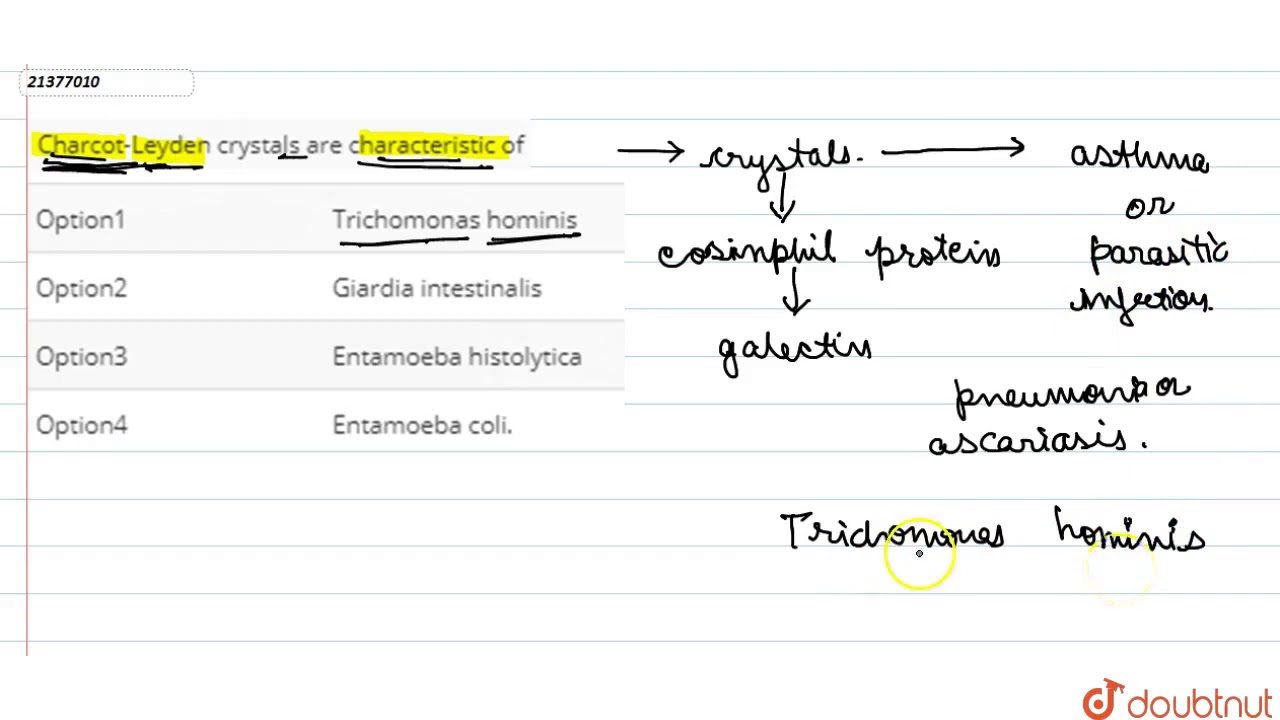 21377010
Charcot-Leyden crystals are characteristic of
Option1 Trichomonas hominis
Option2 Giardia intestinalis
Option3 Entamoeba histolytica
Option4 Entamoeba coli.
crystals. asthma
or
eosinphil protein parasitic
infection.
galectin
pneumonia or
ascariasis.
Trichomonas hominis
doubtnut